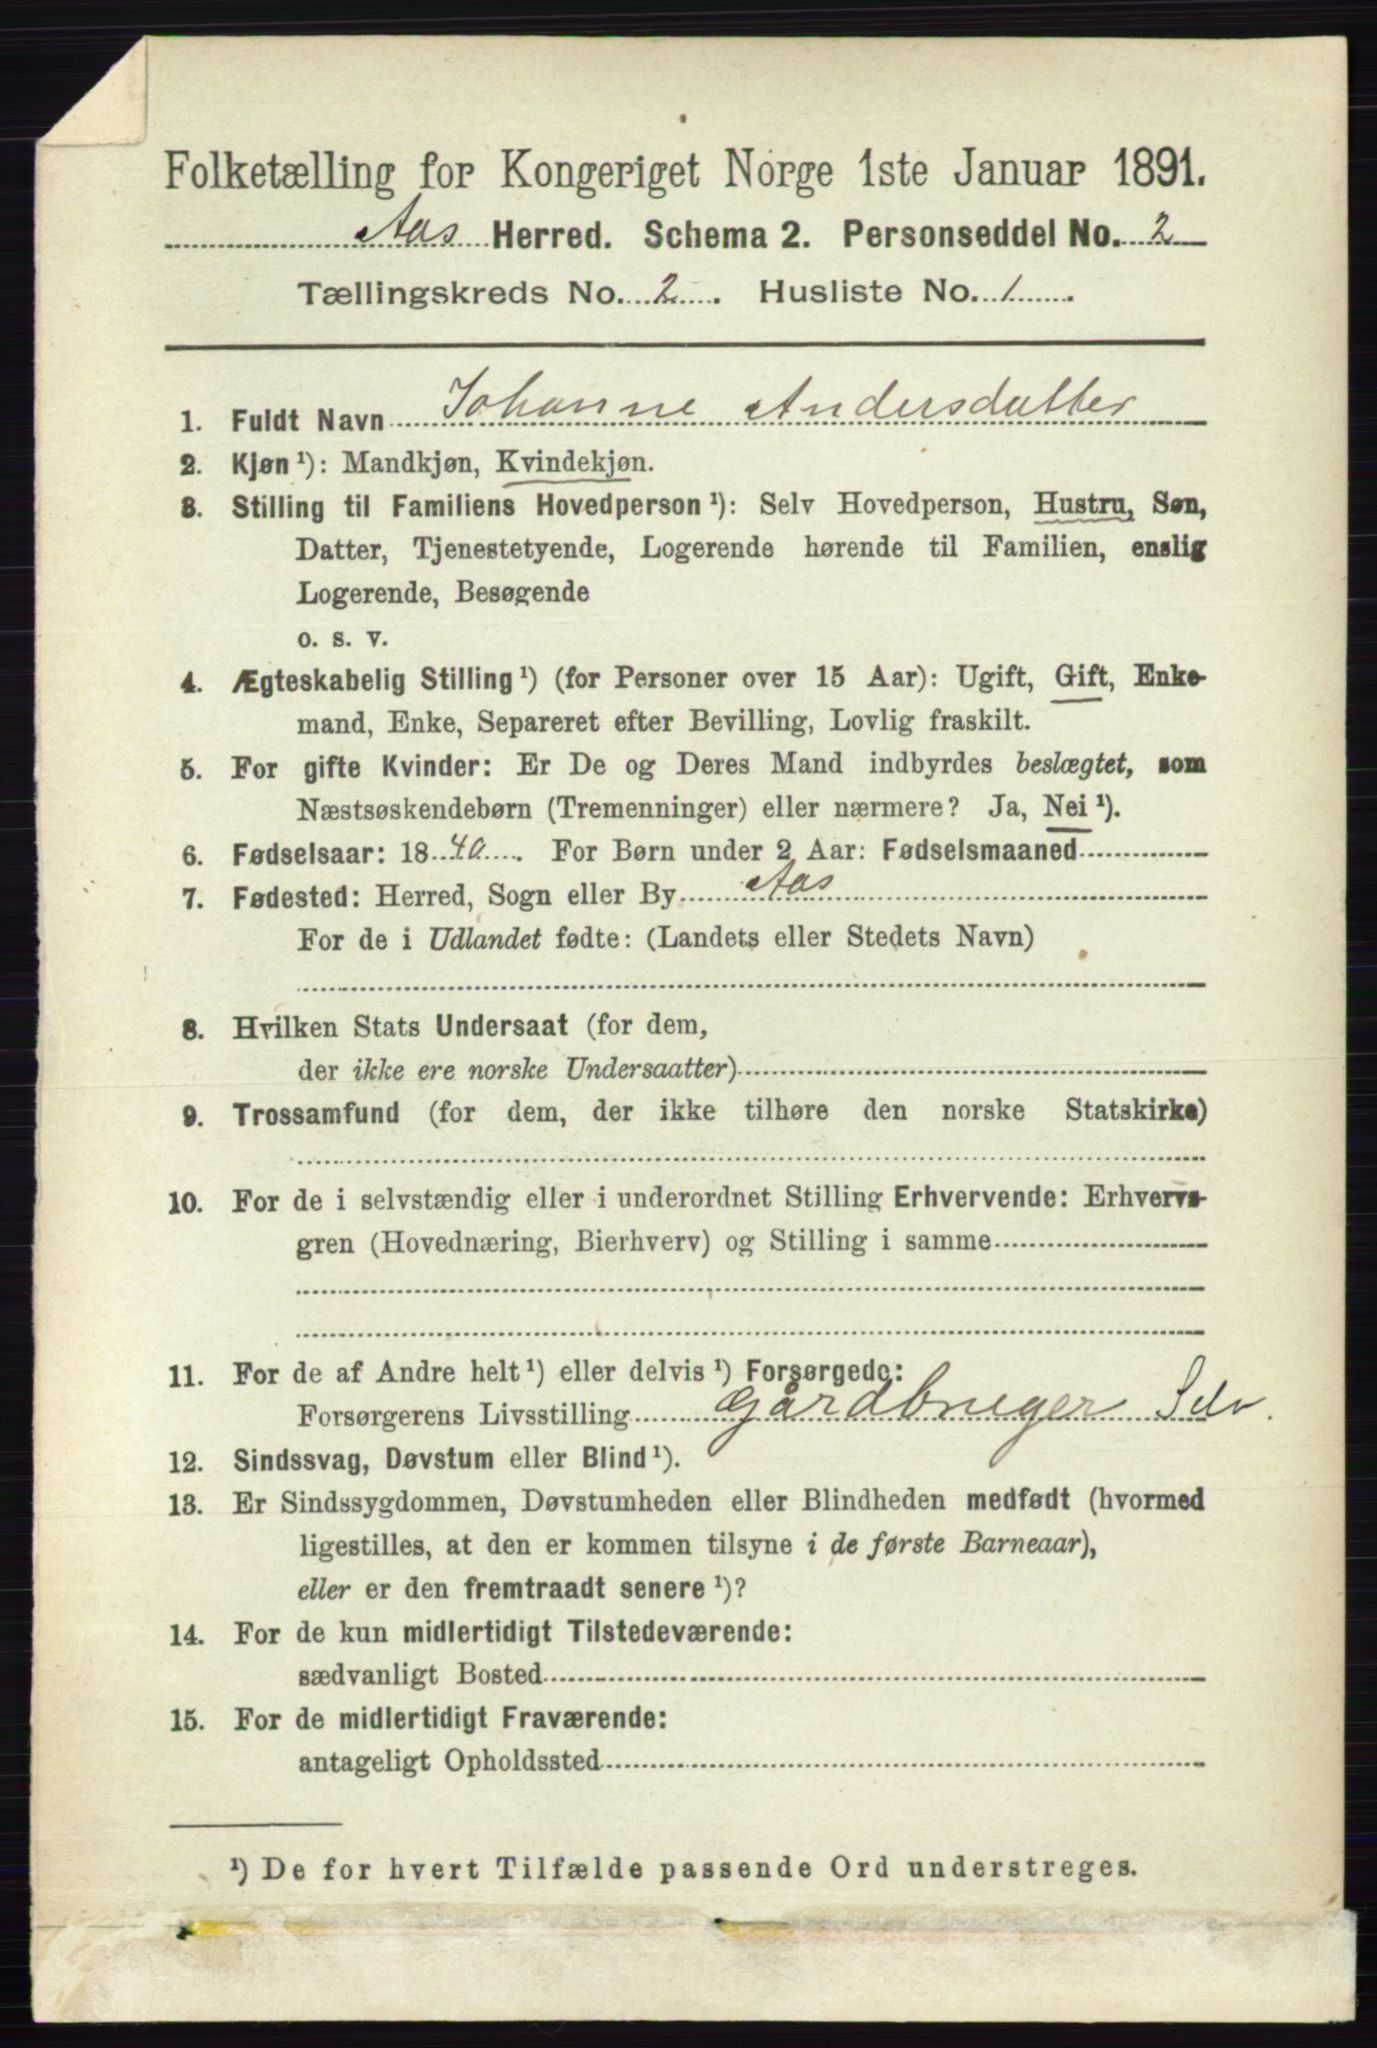 Folketælling for Kongeriget Norge 1ste Januar 1891.
Aas Herred. Schema 2. Personseddel No. 2
Tællingskreds No. 2. Husliste No. 1.
1. Fuldt Navn Johanne Andersdatter
2. Kjøn ¹): Mandkjøn, Kvindekjøn.
3. Stilling til Familiens Hovedperson ¹): Selv Hovedperson, Hustru, Søn,
Datter, Tjenestetyende, Logerende hørende til Familien, enslig
Logerende, Besøgende
o. s. v.
4. Ægteskabelig Stilling ¹) (for Personer over 15 Aar): Ugift, Gift, Enke-
mand, Enke, Separeret efter Bevilling, Lovlig fraskilt.
5. For gifte Kvinder: Er De og Deres Mand indbyrdes beslægtet, som
Næstsøskendebørn (Tremenninger) eller nærmere? Ja, Nei ¹).
6. Fødselsaar: 1840. For Børn under 2 Aar: Fødselsmaaned
7. Fødested: Herred, Sogn eller By Aas
For de i Udlandet fødte: (Landets eller Stedets Navn)
8. Hvilken Stats Undersaat (for dem,
der ikke ere norske Undersaatter)
9. Trossamfund (for dem, der ikke tilhøre den norske Statskirke)
10. For de i selvstændig eller i underordnet Stilling Erhvervende: Erhvervs-
gren (Hovednæring, Bierhverv) og Stilling i samme
11. For de af Andre helt ¹) eller delvis ¹) Forsørgede:
Forsørgerens Livsstilling Gårdbruger Selv.
12. Sindssvag, Døvstum eller Blind ¹).
13. Er Sindssygdommen, Døvstumheden eller Blindheden medfødt (hvormed
ligestilles, at den er kommen tilsyne i de første Barneaar),
eller er den fremtraadt senere ¹)?
14. For de kun midlertidigt Tilstedeværende:
sædvanligt Bosted
15. For de midlertidigt Fraværende:
antageligt Opholdssted
¹) De for hvert Tilfælde passende Ord understreges.